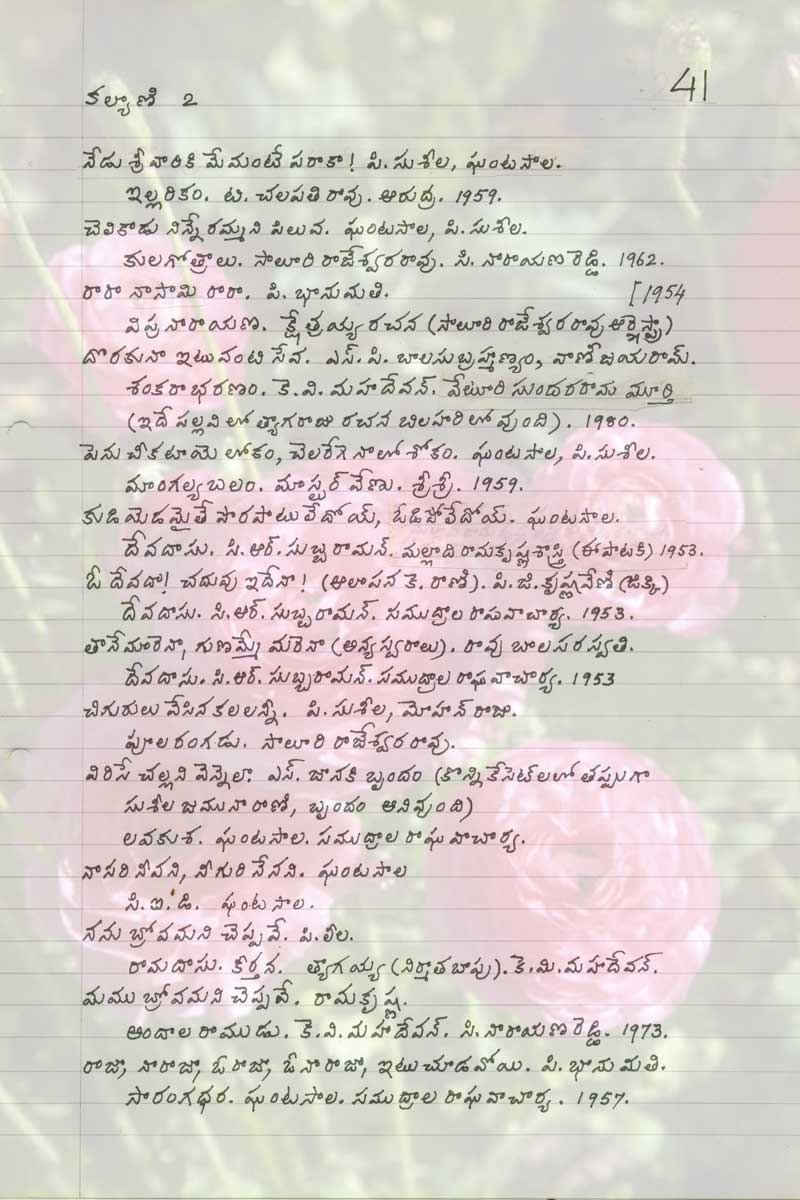 41
కల్యాణి 2
నేడు శ్రీవారికి మేమంటే పరాకా! పి. సుశీల, ఘంటసాల.
ఇల్లరికం. టి. చలపతి రావు. ఆరుద్ర. 1959.
చెలికాడు నిన్నే రమ్మని పిలువ. ఘంటసాల, పి. సుశీల.
కులగోత్రాలు. సాలూరి రాజేశ్వరరావు. సి. నారాయణ రెడ్డి. 1962.
రారా నాసామి రారా. పి. భానుమతి. [1954
విప్రనారాయణ. క్షేత్రయ్య రచన (సాలూరి రాజేశ్వరరావు ఆర్కెస్ట్రా)
దొరకునా ఇటువంటి సేవ. ఎస్. పి. బాలసుబ్రహ్మణ్యం, వాణీ జయరామ్.
శంకరాభరణం. కె. వి. మహాదేవన్. వేటూరి సుందరరామ మూర్తి
(ఇదే పల్లవి లో త్యాగరాజు రచన బిలహరి లో వుంది). 1980.
పెను చీకటాయె లోకం, చెలరేగె నాలో శోకం. ఘంటసాల, పి. సుశీల.
మాంగల్య బలం. మాస్టర్ వేణు. శ్రీశ్రీ. 1959.
కుడి ఎడమైతే పొరపాటు లేదోయ్, ఓడిపోలేదోయ్. ఘంటసాల.
దేవదాసు. సి. ఆర్. సుబ్బరామన్. మల్లాది రామకృష్ణశాస్త్రి (ఈ పాటకి) 1953.
ఓ దేవదా! చదువు ఇదేనా! (ఆలాపన కె. రాణి). పి. జి. కృష్ణవేణి (జిక్కి)
దేవదాసు. సి. ఆర్. సుబ్బరామన్. సముద్రాల రాఘవాచార్య. 1953.
తానే మారెనా, గుణమ్మే మారెనా (అన్యస్వరాలు). రావు బాలసరస్వతి.
దేవదాసు. సి. ఆర్. సుబ్బరామన్. సముద్రాల రాఘవాచార్య. 1953
చిగురులు వేసిన కలలన్నీ. పి. సుశీల, మోహన్ రాజు.
పూల రంగడు. సాలూరి రాజేశ్వరరావు.
విరిసే చల్లని వెన్నెలా. ఎస్. జానకి బృందం (కొన్ని కేసెట్‌లలో తప్పుగా
సుశీల జమునారాణి, బృందం అనివుంది)
లవకుశ. ఘంటసాల. సముద్రాల రాఘవాచార్య.
నాసరి నీవని, నీగురి నేనని. ఘంటసాల
సి. ఐ. డి. ఘంటసాల.
నను బ్రోవమని చెప్పవే. పి. లీల.
రామదాసు. కీర్తన. త్యాగయ్య (నిర్మాత బాపు). కె. వి. మహాదేవన్.
మము బ్రోవమని చెప్పవే. రామకృష్ణ.
అందాల రాముడు. కె. వి. మహాదేవన్. సి. నారాయణ రెడ్డి. 1973.
రాజా, నారాజా, ఓ రాజా, ఓ నారాజా, ఇటు చూడవోయి. పి. భానుమతి.
సారంగధర. ఘంటసాల. సముద్రాల రాఘవాచార్య. 1957.